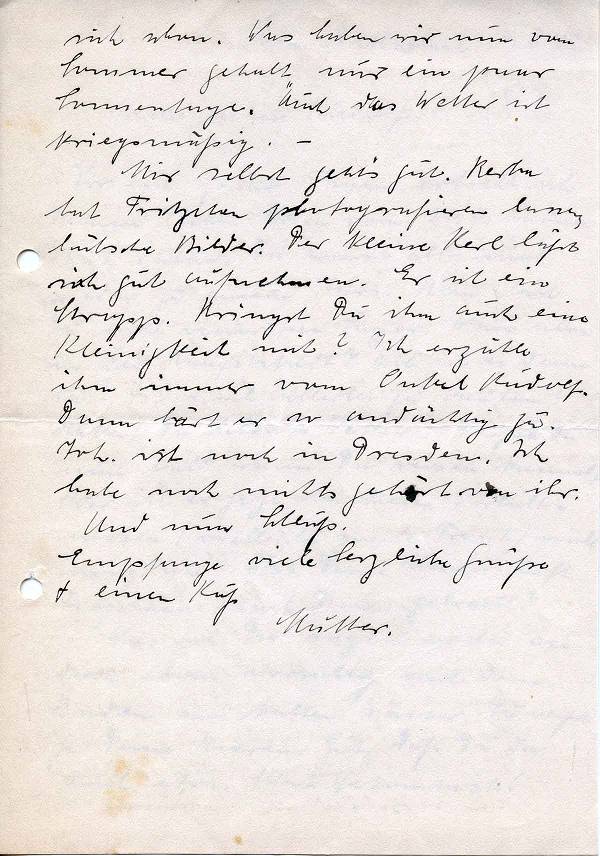 sich schon. Was haben wir nun vom
Sommer gehabt, nur ein paar
Sonnentage. Auch das Wetter ist
kriegsmäßig. –
Mir selbst geht's gut. Herta
hat Fritzchen photografieren lassen,
hübsche Bilder. Der kleine Kerl läßt
sich gut aufnehmen. Er ist ein
Struppp. Bringst Du ihm auch eine
Kleinigkeit mit? Ich erzähle
ihm immer vom Onkel Rudolf.
Dann hört er so andächtig zu.
Joh. ist noch in Dresden. Ich
habe noch nichts gehört von ihr.
Und nun Schluß.
Empfange viele herzliche Grüße
+ einen Kuß
Mutter.